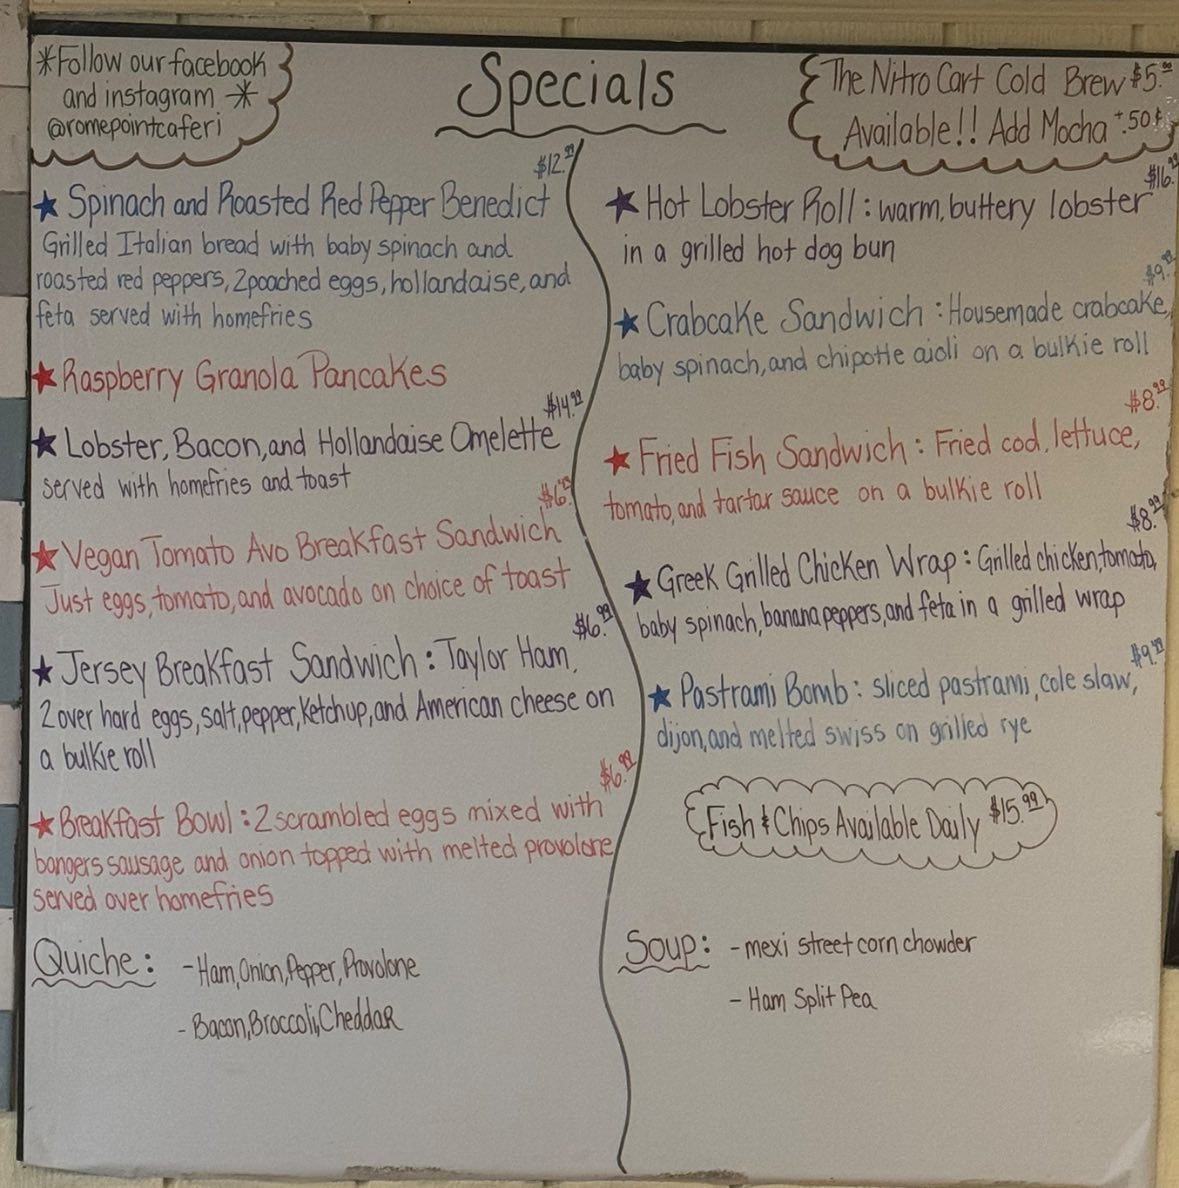 *Follow our facebook
and instagram *
@romepointcaferi
Specials
The Nitro Cart Cold Brew $5.⁰⁰
Available!! Add Mocha +.50¢
$12.⁹⁹
★ Spinach and Roasted Red Pepper Benedict
Grilled Italian bread with baby spinach and
roasted red peppers, 2 poached eggs, hollandaise, and
feta served with homefries
★ Raspberry Granola Pancakes
$14.⁹⁹
★ Lobster, Bacon, and Hollandaise Omelette
served with homefries and toast
$6.⁹⁹
★ Vegan Tomato Avo Breakfast Sandwich
Just eggs, tomato, and avocado on choice of toast
$6.⁹⁹
★ Jersey Breakfast Sandwich: Taylor Ham,
2 over hard eggs, salt, pepper, ketchup, and American cheese on
a bulkie roll
$6.⁹⁹
★ Breakfast Bowl: 2 scrambled eggs mixed with
bangers sausage and onion topped with melted provolone
served over homefries
Quiche: - Ham, Onion, Pepper, Provolone
- Bacon, Broccoli, Cheddar
$16.⁹⁹
★ Hot Lobster Roll: warm, buttery lobster
in a grilled hot dog bun
$9.⁹⁹
★ Crabcake Sandwich: Housemade crabcake,
baby spinach, and chipotle aioli on a bulkie roll
$8.⁹⁹
★ Fried Fish Sandwich: Fried cod, lettuce,
tomato, and tartar sauce on a bulkie roll
$8.⁹⁹
★ Greek Grilled Chicken Wrap: Grilled chicken, tomato,
baby spinach, banana peppers, and feta in a grilled wrap
$9.⁹⁹
★ Pastrami Bomb: sliced pastrami, cole slaw,
dijon, and melted swiss on grilled rye
Fish & Chips Available Daily $15.⁹⁹
Soup: - mexi street corn chowder
- Ham Split Pea